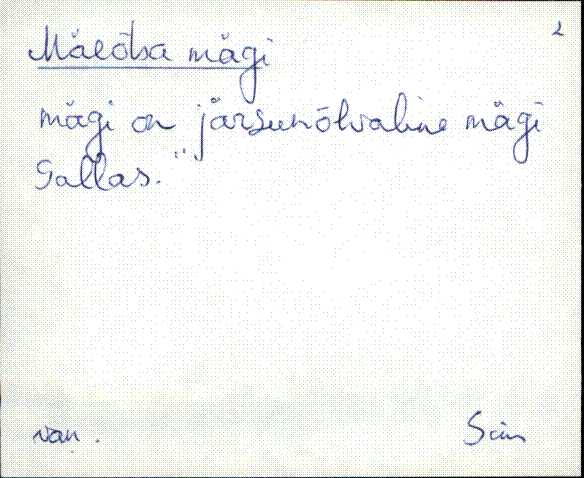 2
Mäeõtsa mägi
mägi on järsunõlvaline mägi
Sallas."
van.